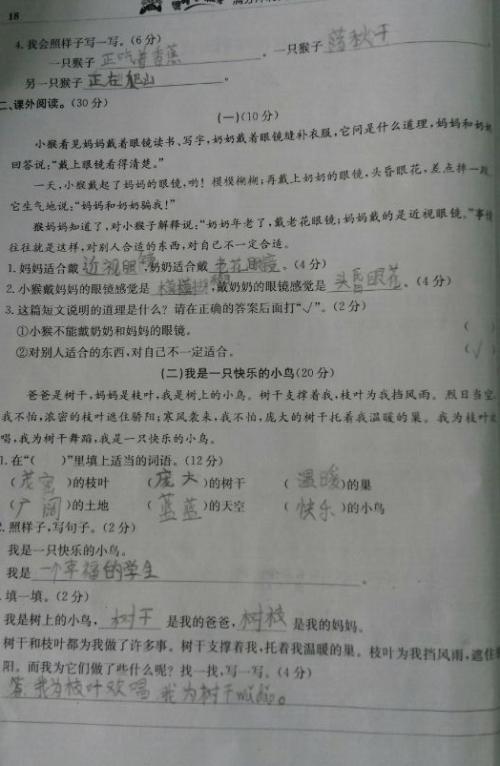 18
4.我会照样子写一写。(6分)
一只猴子 正吃着香蕉 ,一只猴子 荡秋千
另一只猴子 正在爬山 。
二、课外阅读。(30分)
(一)(10分)
小猴看见妈妈戴着眼镜读书、写字,奶奶戴着眼镜缝补衣服,它问是什么道理,妈妈和奶奶
回答说:“戴上眼镜看得清楚。”
一天,小猴戴起了妈妈的眼镜,哟!模模糊糊;再戴上奶奶的眼镜,头昏眼花,差点摔一跤,
它生气地说:“妈妈和奶奶骗我!”
猴妈妈知道了,对小猴子解释说:“奶奶年老了,戴老花眼镜;妈妈戴的是近视眼镜。”事情
往往就是这样,对别人合适的东西,对自己不一定合适。
1.妈妈适合戴 近视眼镜 ,奶奶适合戴 老花眼镜 。(4分)
2.小猴戴妈妈的眼镜感觉是 模模糊糊 ,戴奶奶的眼镜感觉是 头昏眼花 。(4分)
3.这篇短文说明的道理是什么?请在正确的答案后面打“√”。(2分)
①小猴不能戴奶奶和妈妈的眼镜。 (
②对别人适合的东西,对自己不一定适合。 (√)
(二)我是一只快乐的小鸟(20分)
爸爸是树干,妈妈是枝叶,我是树上的小鸟。树干支撑着我,枝叶为我挡风雨。烈日当空,
我不怕,浓密的枝叶遮住骄阳;寒风袭来,我不怕,庞大的树干托着我温暖的巢。我为枝叶欢
唱,我为树干舞蹈,我是一只快乐的小鸟。
1.在“( )”里填上适当的词语。(12分)
(茂密)的枝叶 (庞大)的树干 (温暖)的巢
(广阔)的土地 (蓝蓝)的天空 (快乐)的小鸟
2.照样子,写句子。(2分)
我是一只快乐的小鸟。
我是 一个幸福的学生 。
.填一填。(2分)
我是树上的小鸟, 树干 是我的爸爸, 树枝 是我的妈妈。
树干和枝叶都为我做了许多事。树干支撑着我,托着我温暖的巢。枝叶为我挡风雨,遮住骄
阳。而我为它们做了些什么呢?找一找,写一写。(4分)
答:我为枝叶欢唱 我为树干wǔdǎo。